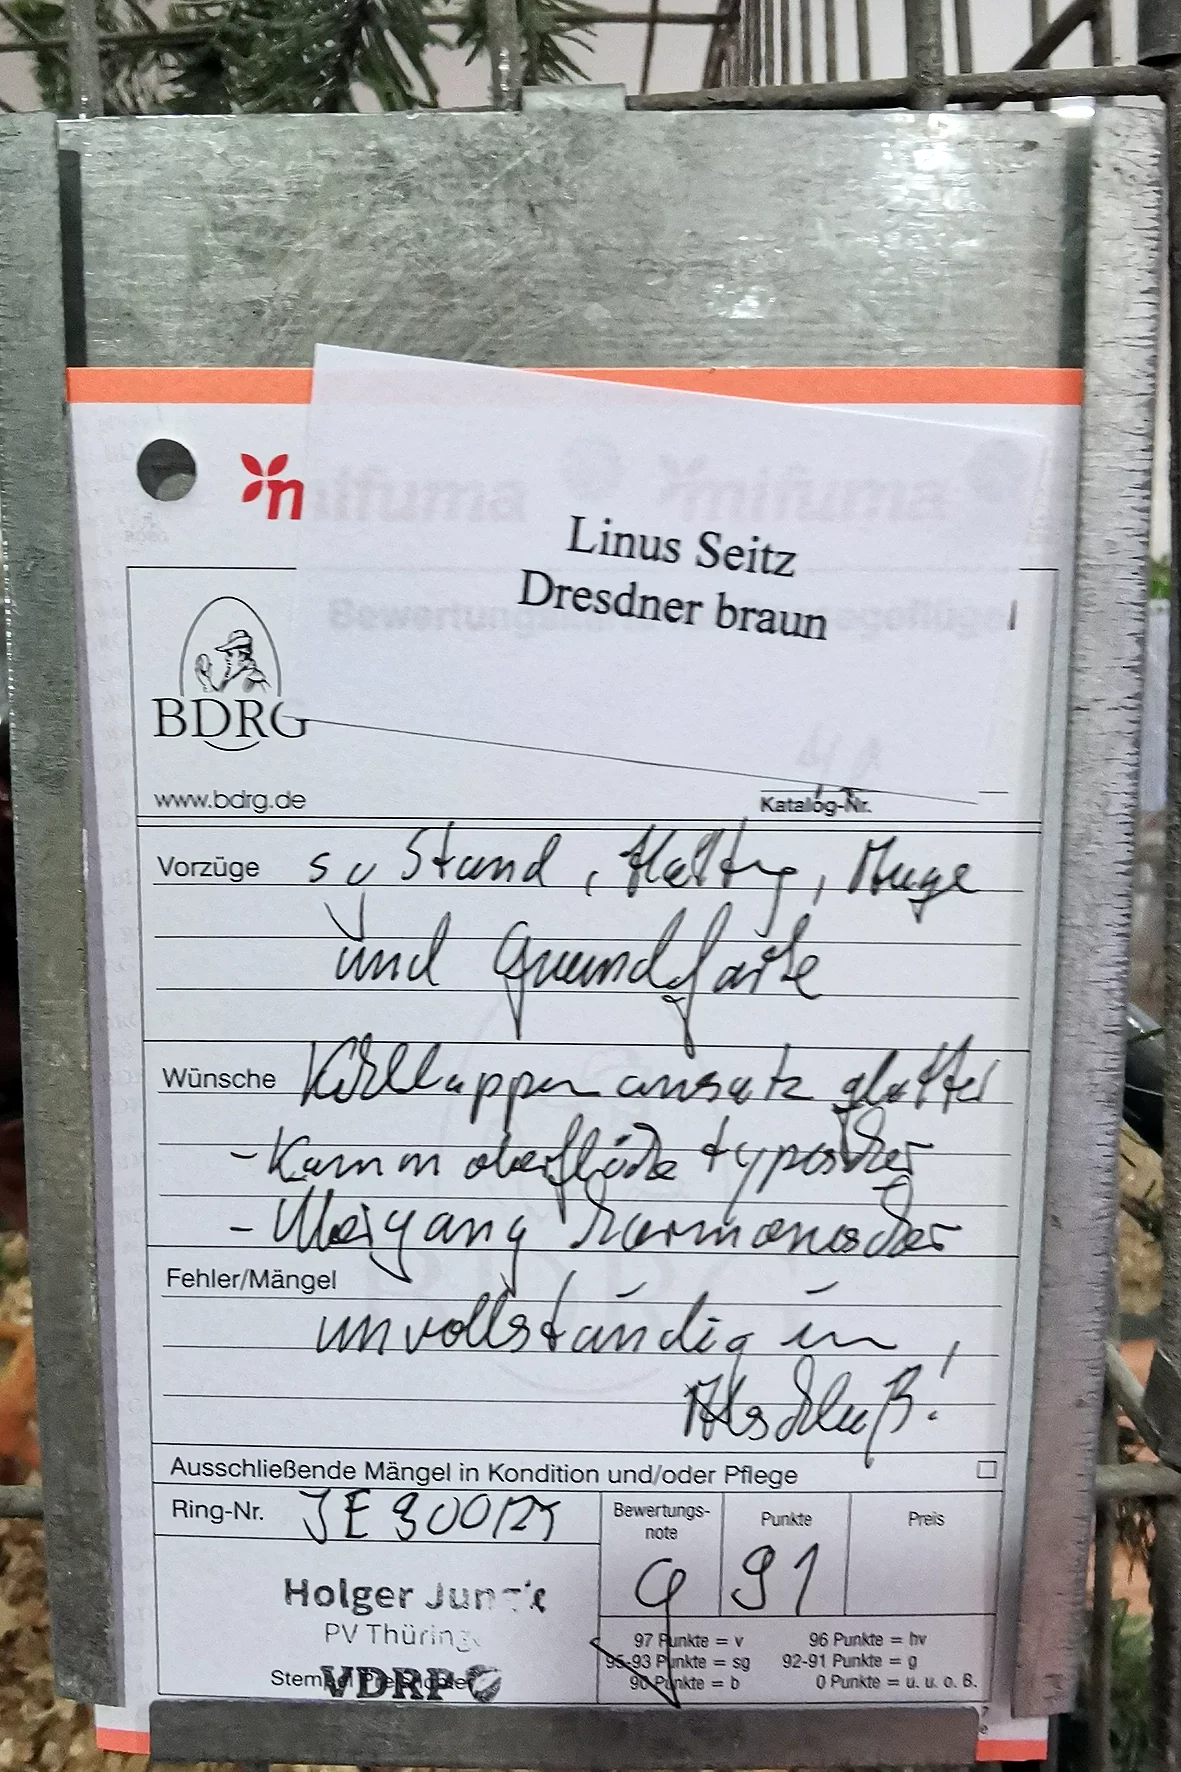 mifuma mifuma
Linus Seitz
Dresdner braun
BDRG
www.bdrg.de
Katalog-Nr.
Vorzüge Stand, Haltung, Auge
und Grundfarbe
Wünsche Kehllappenansatz glatter
- Kammoberfläche typischer
- Übergang harmonischer
Fehler/Mängel
unvollständig im
Abschluß!
Ausschließende Mängel in Kondition und/oder Pflege
Ring-Nr. Bewertungs-note Punkte Preis
g 91
Holger
PV
97 Punkte = v 96 Punkte = hv
95-93 Punkte = sg 92-91 Punkte = g
90 Punkte = b 0 Punkte = u. u. o. B.
VDRP